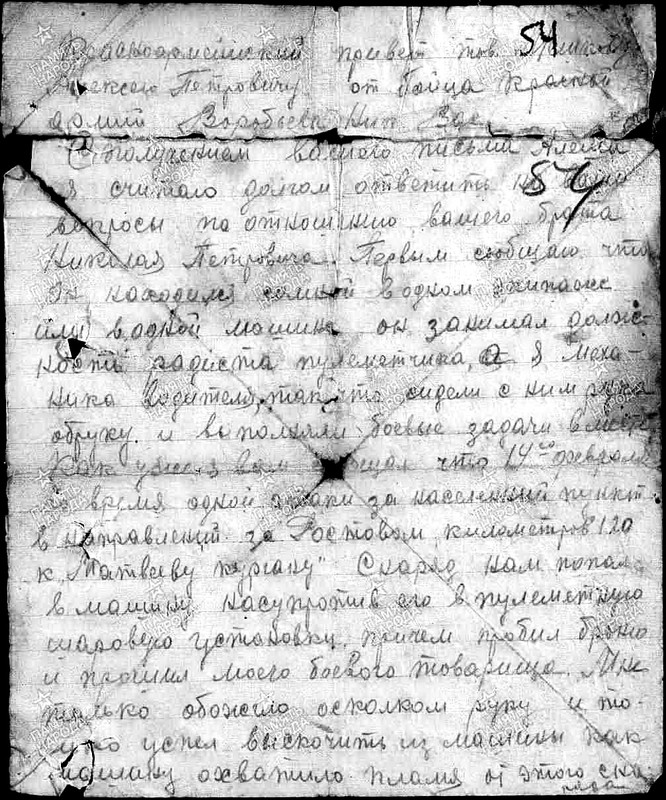 54
Красноармейский привет тов.
Алексею Петровичу от бойца Красной
армий Воробьева Ник Вас
С получением вашего письма Алеша
я считаю долгом ответить на ваши
54
вопросы по отношению вашего брата
Николая Петровича. Первым сообщаю что
он находился сомной в одном экипаже
или водной машине он занимал долж-
ность радиста пулеметчика, а я меха-
ника водителя, так что сидели с ним рука
обруку и выполняли боевые задачи вместе
Как уже я вам сообщал что 14го февраля
во время одной атаки за населенный пункт
в направлений за Ростовом километров 120
к "Матвееву кургану" Снаряд нам попал
в машину насупротив его в пулеметную
шаровую установку, причем пробил броню
и прошил моего боевого товарища. Мне
только обожгло осколком руку и то-
лько успел выскочить из машины как
машину охватило пламя от этого сна-
ряда